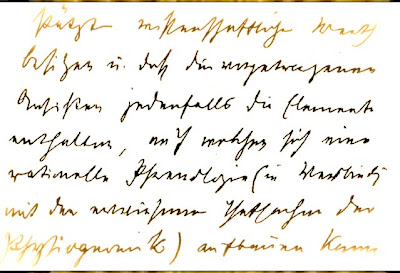 stützt wissenschaftliche Werth
besitzen u. daß die vorgetragenen
Ansichten jedenfalls die Elemente
enthalten, auf welchen sich eine
rationelle Phrenologie (in Verbindg
mit den erwiesenen Thatsachen der
Physiognomik) aufbauen kann